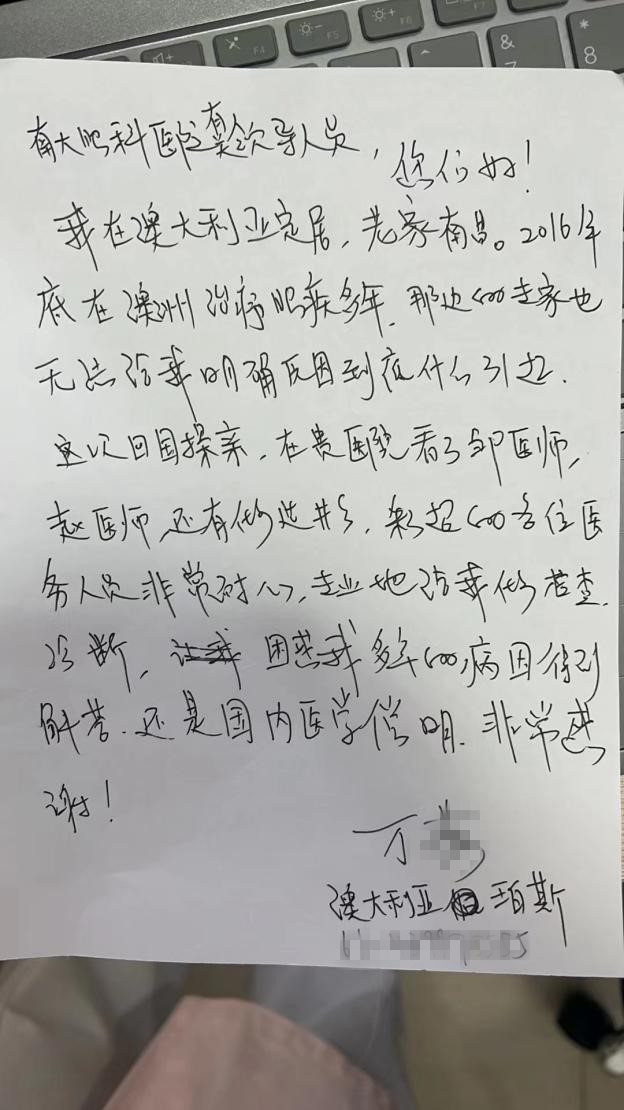 南大眼科医院有关领导人员,
您们好!
我在澳大利亚定居,老家南昌。2016年
底在澳州治疗眼疾多年,那边的专家也
无法给我明确原因到底什么引起.
这次回国探亲,在贵医院看了邹医师,
赵医师,还有做造影,彩超的各位医
务人员非常耐心,专业地给我做检查.
诊断,困惑我多年的病因得到
解答.还是国内医学倍明.非常感
谢!
万
澳大利亚 珀斯
F4
F5
F6
&
7
*
8